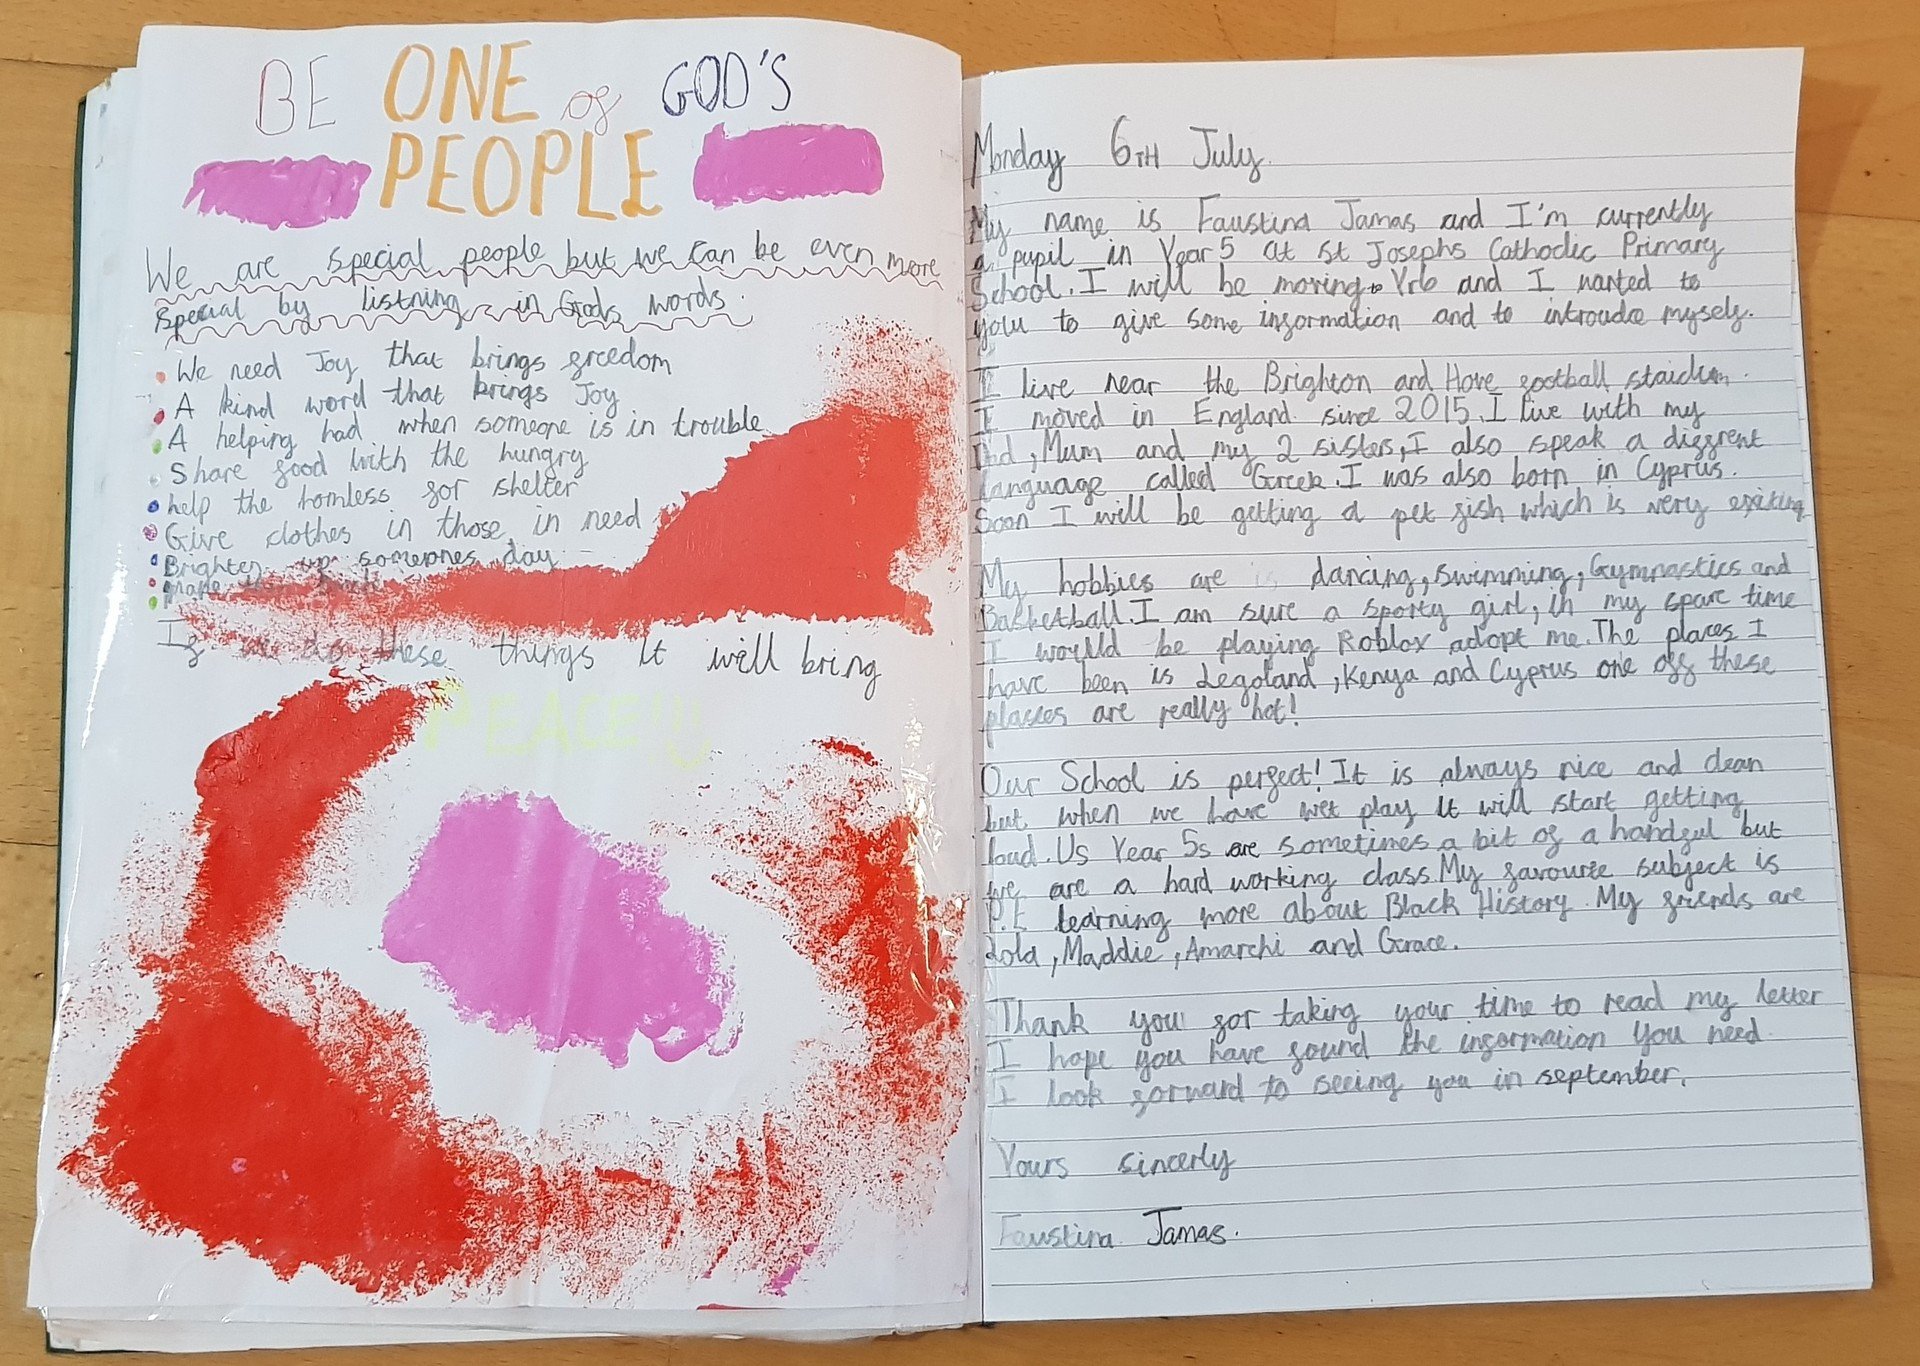 BE ONE of GOD'S
PEOPLE
We are special people but we can be even more
special by listning in Gods words.
We need Joy that brings freedom
A kind word that brings Joy
A helping had when someone is in trouble
Share food with the hungry
help the homless for shelter
Give clothes in those in need
Brighten up someones day
make
If do these things it will bring
PEACE!!
Monday 6TH July.
My name is Faustina Jamas and I'm currently
a pupil in Year 5 at St Josephs Cathodic Primary
School. I will be moving to Yr6 and I wanted to
you to give some information and to introudce myself.
I live near the Brighton and Hove football staidum.
I moved in England since 2015. I live with my
Dad, Mum and my 2 sisters, I also speak a diffrent
language called Greek. I was also born in Cyprus.
Soon I will be getting a pet fish which is very exiting
My hobbies are dancing, swimming, Gymnastics and
Basketball. I am sure a sporty girl, in my spare time
I would be playing Roblox adopt me. The places I
have been is Legoland, Kenya and Cyprus one off these
places are really hot!
Our School is perfect! It is always nice and clean
but when we have wet play it will start getting
loud. Us Year 5s are sometimes a bit of a handful but
we are a hard working class. My favourite subject is
P.E learning more about Black History. My friends are
Lola, Maddie, Amarchi and Grace.
Thank you for taking your time to read my letter
I hope you have found the information you need.
I look forward to seeing you in september.
Yours sincerly
Faustina Jamas.